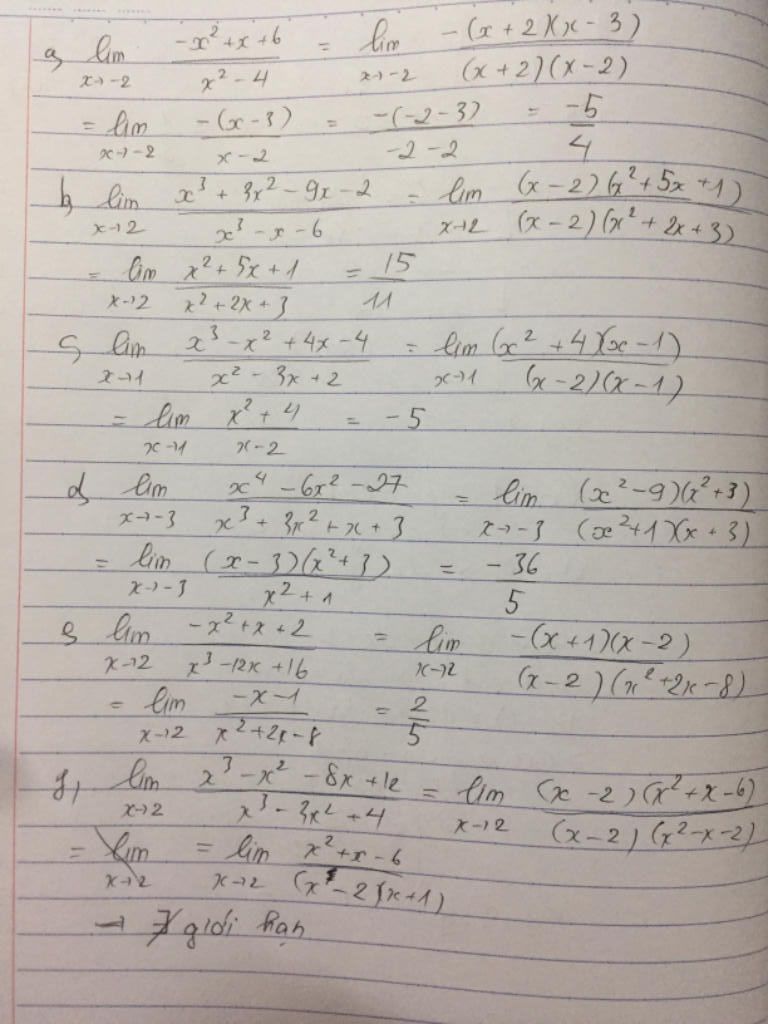 a, lim x→-2 (-x² + x + 6)/(x² - 4) = lim x→-2 (-(x + 2)(x - 3))/((x + 2)(x - 2))
= lim x→-2 (-(x - 3))/(x - 2) = (-(-2 - 3))/(-2 - 2) = -5/4
b, lim x→2 (x³ + 3x² - 9x - 2)/(x³ - x - 6) = lim x→2 ((x - 2)(x² + 5x + 1))/((x - 2)(x² + 2x + 3))
= lim x→2 (x² + 5x + 1)/(x² + 2x + 3) = 15/11
c, lim x→1 (x³ - x² + 4x - 4)/(x² - 3x + 2) = lim x→1 ((x² + 4)(x - 1))/((x - 2)(x - 1))
= lim x→1 (x² + 4)/(x - 2) = -5
d, lim x→-3 (x⁴ - 6x² - 27)/(x³ + 3x² + x + 3) = lim x→-3 ((x² - 9)(x² + 3))/((x² + 1)(x + 3))
= lim x→-3 ((x - 3)(x² + 3))/(x² + 1) = -36/5
e, lim x→2 (-x² + x + 2)/(x³ - 12x + 16) = lim x→2 (-(x + 1)(x - 2))/((x - 2)(x² + 2x - 8))
= lim x→2 (-x - 1)/(x² + 2x - 8) = 2/5
g, lim x→2 (x³ - x² - 8x + 12)/(x³ - 3x² + 4) = lim x→2 ((x - 2)(x² + x - 6))/((x - 2)(x² - x - 2))
= lim x→2 = lim x→2 (x² + x - 6)/((x - 2)(x + 1))
→ ∄ giới hạn